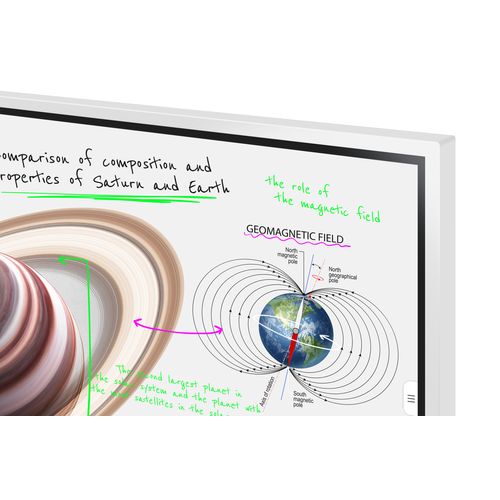 omparison of composition and
roperties of Saturn and Earth
the role of
the magnetic field
GEOMAGNETIC FIELD
North
magnetic
pole
North
geographical
pole
The second largest planet in
the solar system and the planet with
the most satellites in the solar
Axis of rotation
South
magnetic
pole